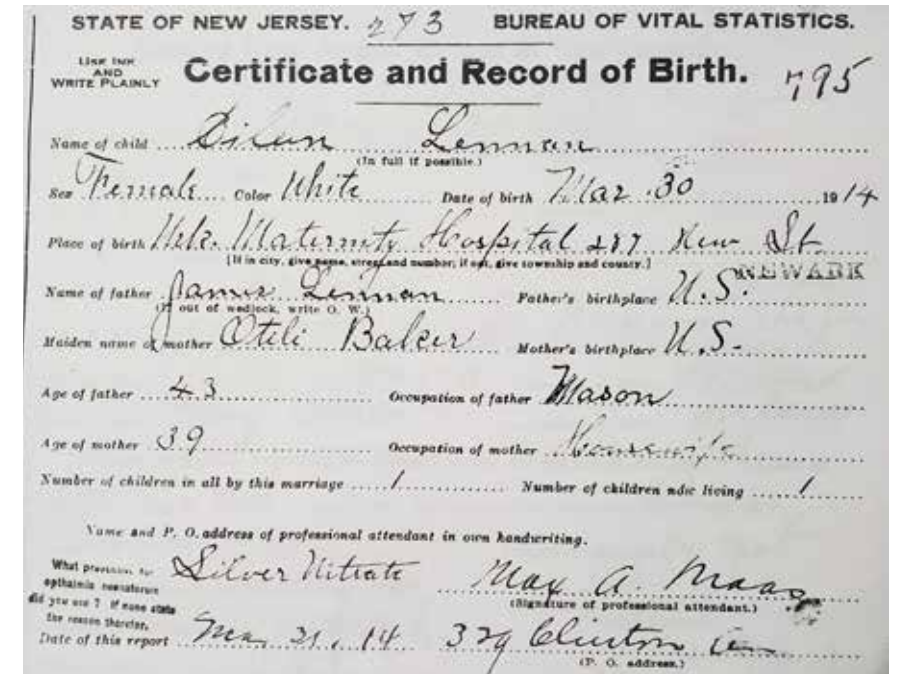 STATE OF NEW JERSEY. 273 BUREAU OF VITAL STATISTICS.
USE INK
AND
WRITE PLAINLY
Certificate and Record of Birth. 795
Name of child Lennan
(In full if possible.)
Sex Female Color White Date of birth Mar 30 1914
Place of birth Maternity Hospital 287 New St
[If in city, give name, street and number; if not, give township and county.]
NEWARK
Name of father James Lennan Father's birthplace U.S.
(If out of wedlock, write O. W.)
Maiden name of mother Otili Baker Mother's birthplace U.S.
Age of father 43 Occupation of father Mason
Age of mother 39 Occupation of mother Housewife
Number of children in all by this marriage 1 Number of children now living 1
Name and P. O. address of professional attendant in own handwriting.
What prevention for
opthalmia neonatorum
did you use? If none state
the reason therefor.
Silver Nitrate Max A. Maas
(Signature of professional attendant.)
Date of this report 31, 14 329 Clinton
(P. O. address.)